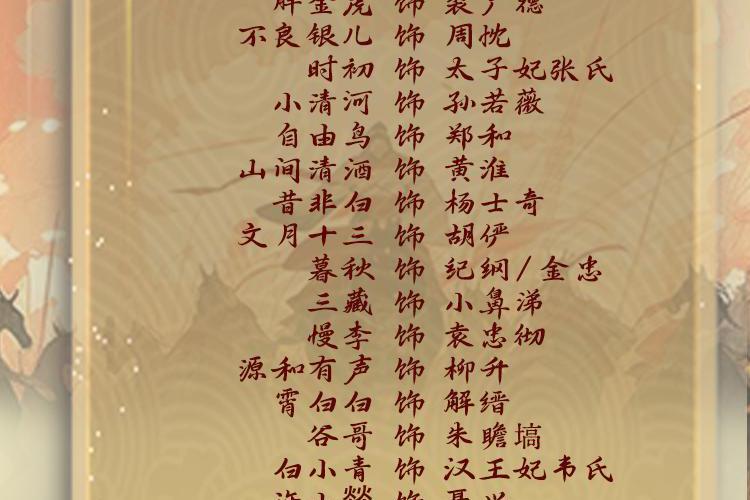 金虎 饰 裴广德
不良银儿 饰 周忱
时初 饰 太子妃张氏
小清河 饰 孙若薇
自由鸟 饰 郑和
山间清酒 饰 黄淮
昔非白 饰 杨士奇
文月十三 饰 胡俨
暮秋 饰 纪纲/金忠
三藏 饰 小鼻涕
慢李 饰 袁忠彻
源和有声 饰 柳升
霄白白 饰 解缙
谷哥 饰 朱瞻塙
白小青 饰 汉王妃韦氏
饰 聂兴